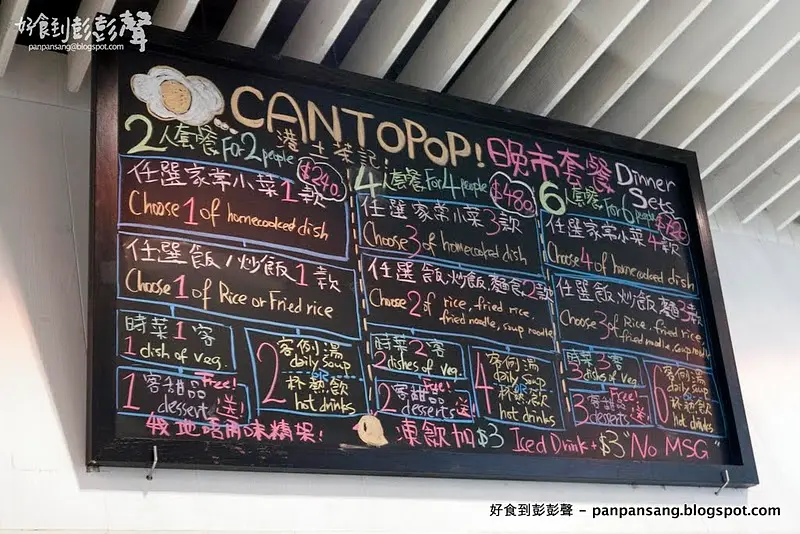 好食到彭彭聲
panpansang@blogspot.com
CANTOPOP!
港士茶記!
晚市套餐
Dinner Sets
2人套餐 For 2 people $240
任選家常小菜1款
Choose 1 of homecooked dish
任選飯/炒飯1款
Choose 1 of Rice or Fried rice
時菜1客
1 dish of veg.
1客甜品 Free!
dessert 送
2 客例湯
daily soup
OR
杯熱飲
hot drinks
4人套餐 For 4 people $480
任選家常小菜3款
Choose 3 of homecooked dish
任選飯炒飯麵食2款
Choose 2 of rice, fried rice,
fried noodle, soup noodle
時菜2客
2 dishes of veg.
2客甜品 Free!
desserts 送
4 客例湯
daily soup
OR
杯熱飲
hot drinks
6人套餐 For 6 people
任選家常小菜4款
Choose 4 of homecooked dish
任選飯炒飯麵3款
Choose 3 of Rice, fried rice,
fried noodle, soup noodle
時菜3客
3 dishes of veg.
3客甜品 Free!
desserts 送
6 客例湯
daily soup
OR
杯熱飲
hot drinks
我地唔用味精架!
凍飲加$3 Iced Drink + $3 "No MSG"
好食到彭彭聲 - panpansang.blogspot.com